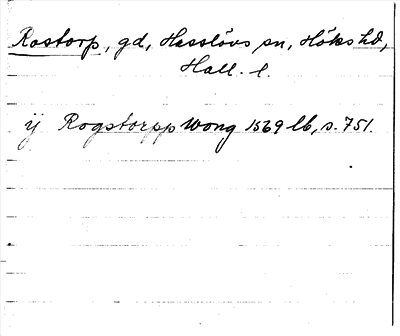 Rostorp, gd, Hasslövs sn, Höks hd,
Hall. l.
ij Rogstorpp Wong 1569 lb, s. 751.